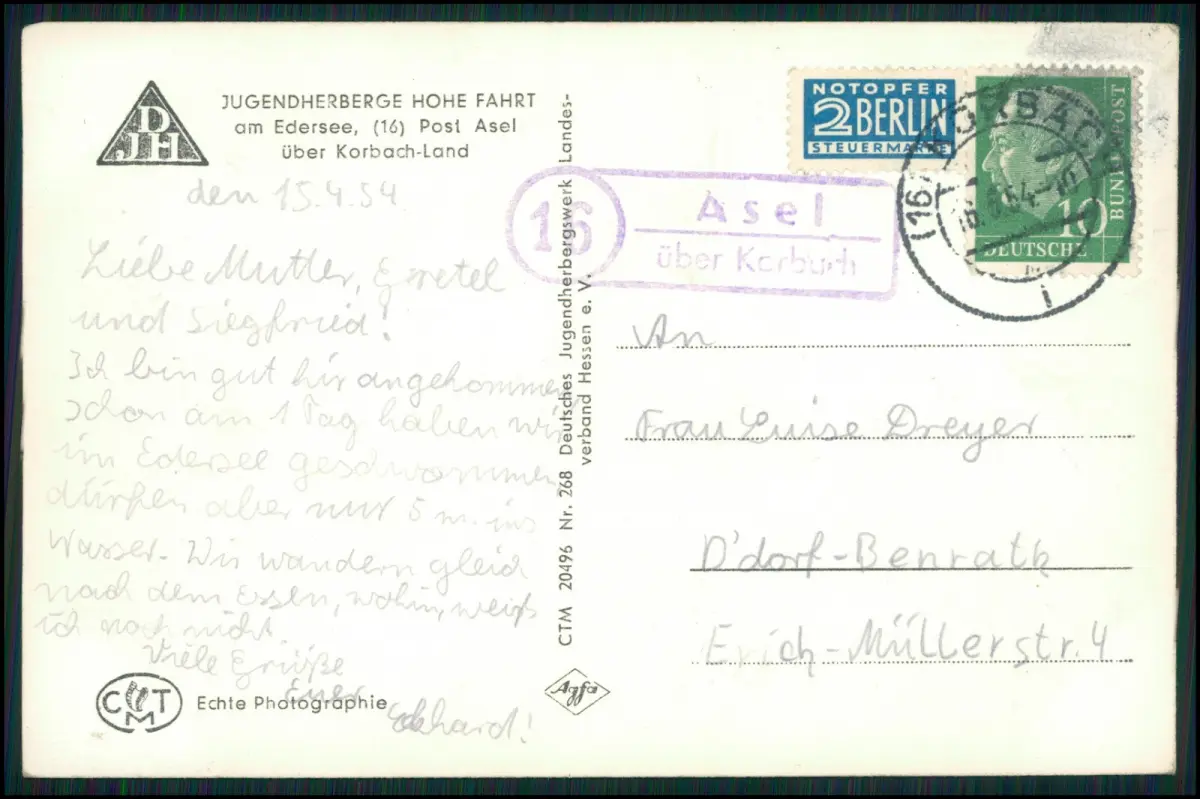 DJH
JUGENDHERBERGE HOHE FAHRT
am Edersee, (16) Post Asel
über Korbach-Land
den 15.4.54
Liebe Mutter, Gretel
und Siegfried!
Ich bin gut hir angekommen
schon am 1 Tag haben wir
im Edersee geschwommen
dürfen aber nur 5 m. ins
Wasser. Wir wandern gleich
nach dem Essen, wohin, weiß
ich noch nicht.
Viele Grüße
Euer
Eckhard!
CMT
Echte Photographie
CTM 20496 Nr. 268 Deutsches Jugendherbergswerk Landes-
verband Hessen e. V.
Agfa
16
Asel
über Korbach
NOTOPFER
2 BERLIN
STEUERMARKE
DEUTSCHE
BUNDESPOST
10
(16) KORBACH
i
An
Frau Luise Dreyer
D'dorf-Benrath
Erich-Müllerstr. 4